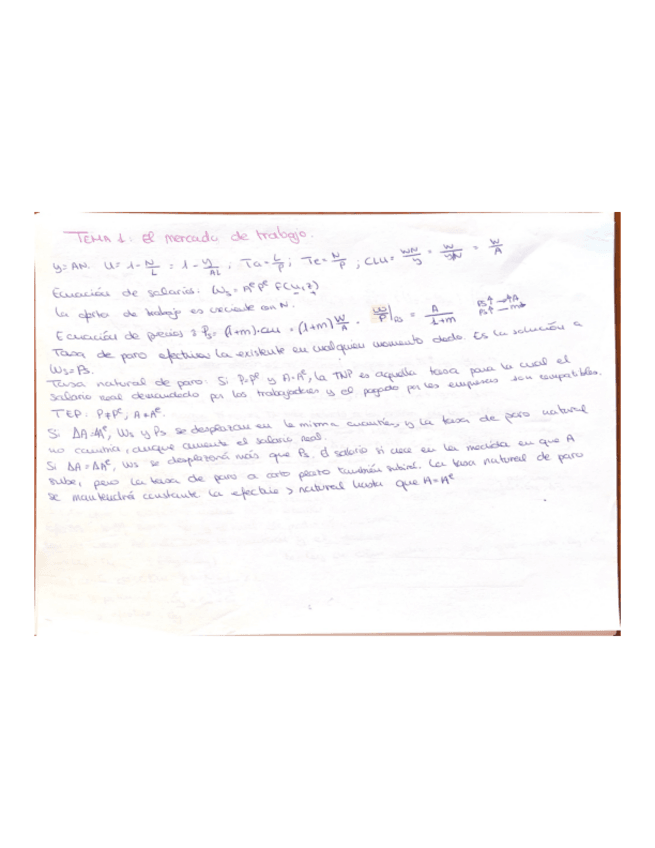 TEMA 1: El mercado de trabajo.
Y=AN. U=1-N/L = 1-Y/AL; Ta=L/P; Te=N/P; CLU=WN/Y = W/Y/N = W/A
Ecuación de salarios: Ws=AᵉPᵉ F(u,z)
La oferta de trabajo es creciente con N.
Ecuación de precios: Ps=(1+m)·CLU=(1+m)W/A. W/P|PS = A/1+m PS↑→↑A PS↑→m↓
Tasa de paro efectiva: la existente en cualquier momento dado. Es la solución a
Ws=Ps.
Tasa natural de paro: Si P=Pᵉ y A=Aᵉ, la TNP es aquella tasa para la cual el
salario real demandado por los trabajadores y el pagado por las empresas son compatibles.
TEP: P≠Pᵉ, A≠Aᵉ.
Si ΔA=Aᵉ, Ws y Ps se desplazan en la misma cuantía, y la tasa de paro natural
no cambia, aunque aumente el salario real.
Si ΔA=ΔAᵉ, Ws se desplazará más que Ps. El salario si crece en la medida en que A
sube, pero la tasa de paro a corto plazo también subirá. La tasa natural de paro
se mantendrá constante la efectiva > natural hasta que A=Aᵉ